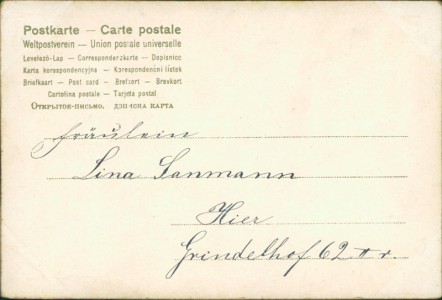 Postkarte — Carte postale
Weltpostverein — Union postale universelle
Levelező-Lap — Correspondenzkarte — Dopisnice
Karta korespondencyjna — Korespondenční lístek
Briefkaart — Post card — Brefkort — Brevkort
Cartolina postale — Tarjeta postal
Открытое-письмо.
Fräulein
Lina Sanmann
Hier
Grindelhof 62 II r.